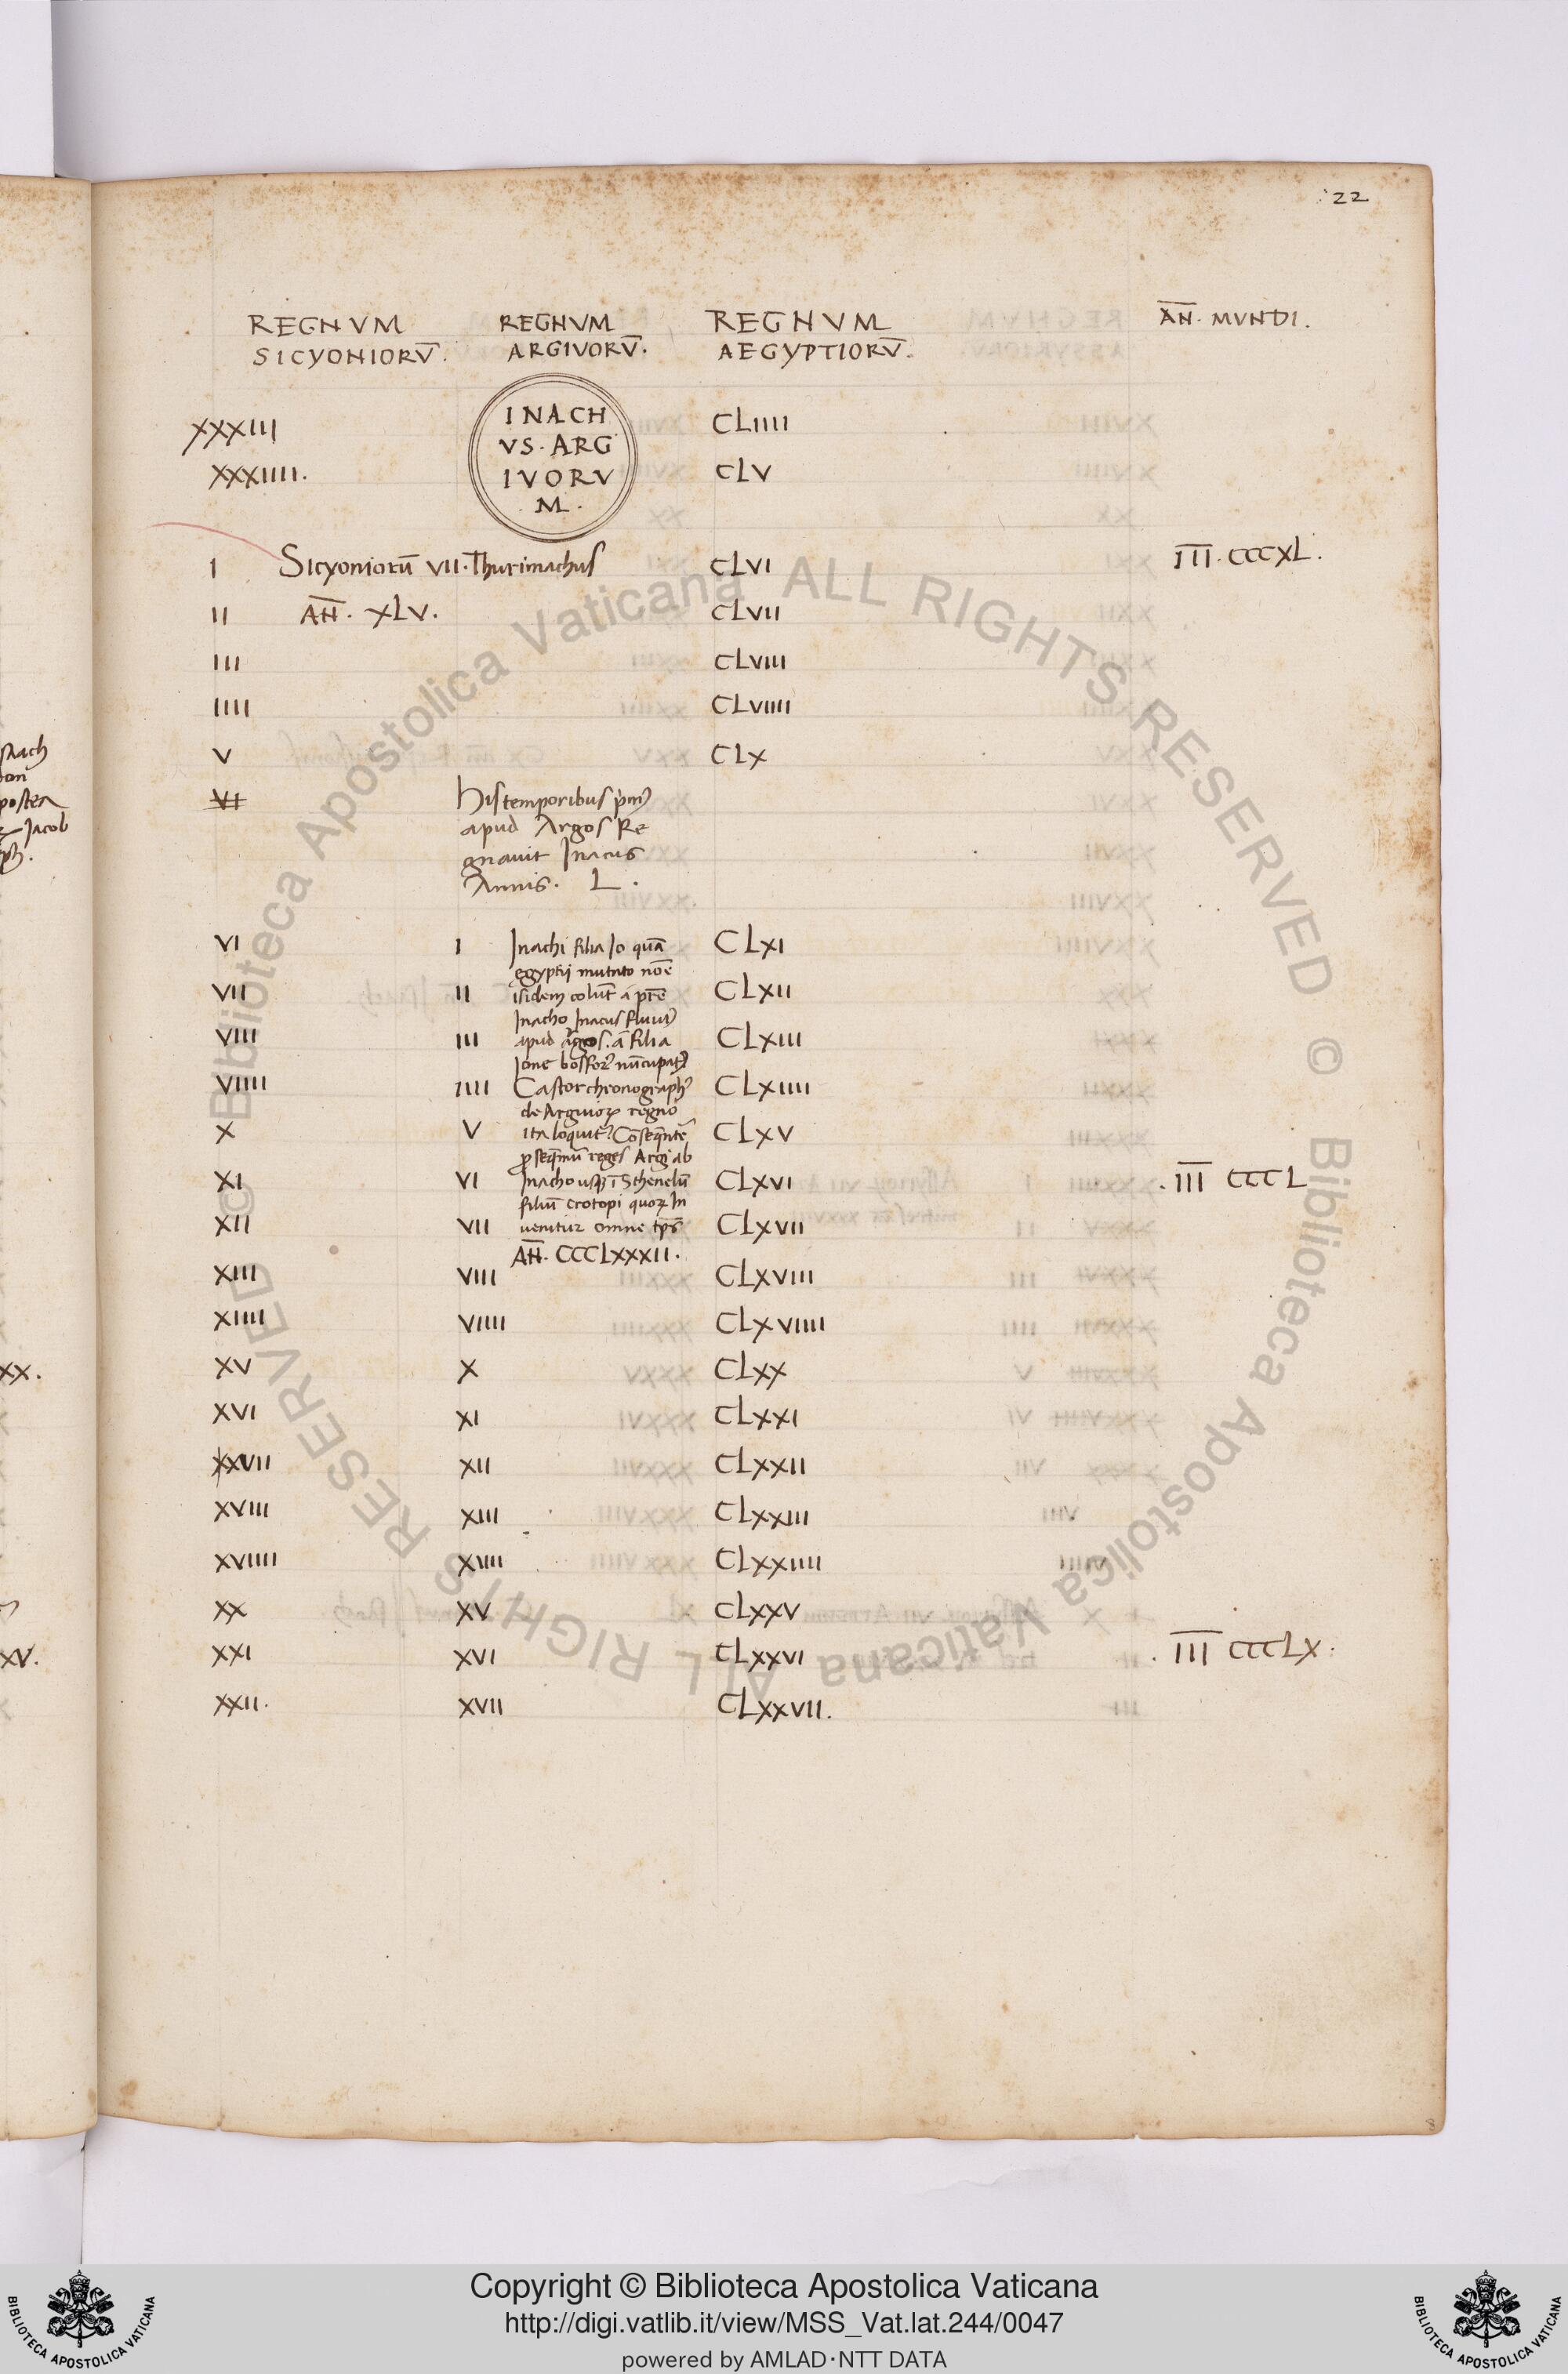 22
REGNVM REGNVM REGNVM AN̅. MVNDI.
SICYONIORV̅. ARGIVORV̅. AEGYPTIORV̅.
INACH
VS. ARG
IVORV
M.
XXXIII CLIIII
XXXIIII. CLV
I Sicyoniorū VII. Thurimachus CLVI I̅I̅I̅. CCCXL.
II AN̅. XLV. CLVII
III CLVIII
IIII CLVIIII
V CLX
VI
His temporibus
apud Argos Re
gnauit Inacus
Annis. L.
VI I Inachi filia Io quā CLXI
egyptij mutato noē
VII II isidem colūt a prē CLXII
Inacho Inacus
VIII III apud argos. a filia CLXIII
Ione
VIIII IIII Castor CLXIIII
de regno
X V ita CLXV
reges Argi ab
XI VI Inacho Sthenelū CLXVI I̅I̅I̅ CCCL
filiū crotopi quoꝝ In
XII VII uenitur omne tp̄s CLXVII
AN̅. CCCLXXXII.
XIII VIII CLXVIII
XIIII VIIII CLXVIIII
XV X CLXX
XVI XI CLXXI
XXVII XII CLXXII
XVIII XIII CLXXIII
XVIIII XIIII CLXXIIII
XX XV CLXXV
XXI XVI CLXXVI I̅I̅I̅ CCCLX:
XXII. XVII CLXXVII.
postea
Jacob
XX.
XV.
8
© Biblioteca Apostolica Vaticana ALL RIGHTS RESERVED © Biblioteca Apostolica Vaticana ALL RIGHTS RESERVED
Copyright © Biblioteca Apostolica Vaticana
http://digi.vatlib.it/view/MSS_Vat.lat.244/0047
powered by AMLAD·NTT DATA
BIBLIOTECA APOSTOLICA VATICANA
BIBLIOTECA APOSTOLICA VATICANA